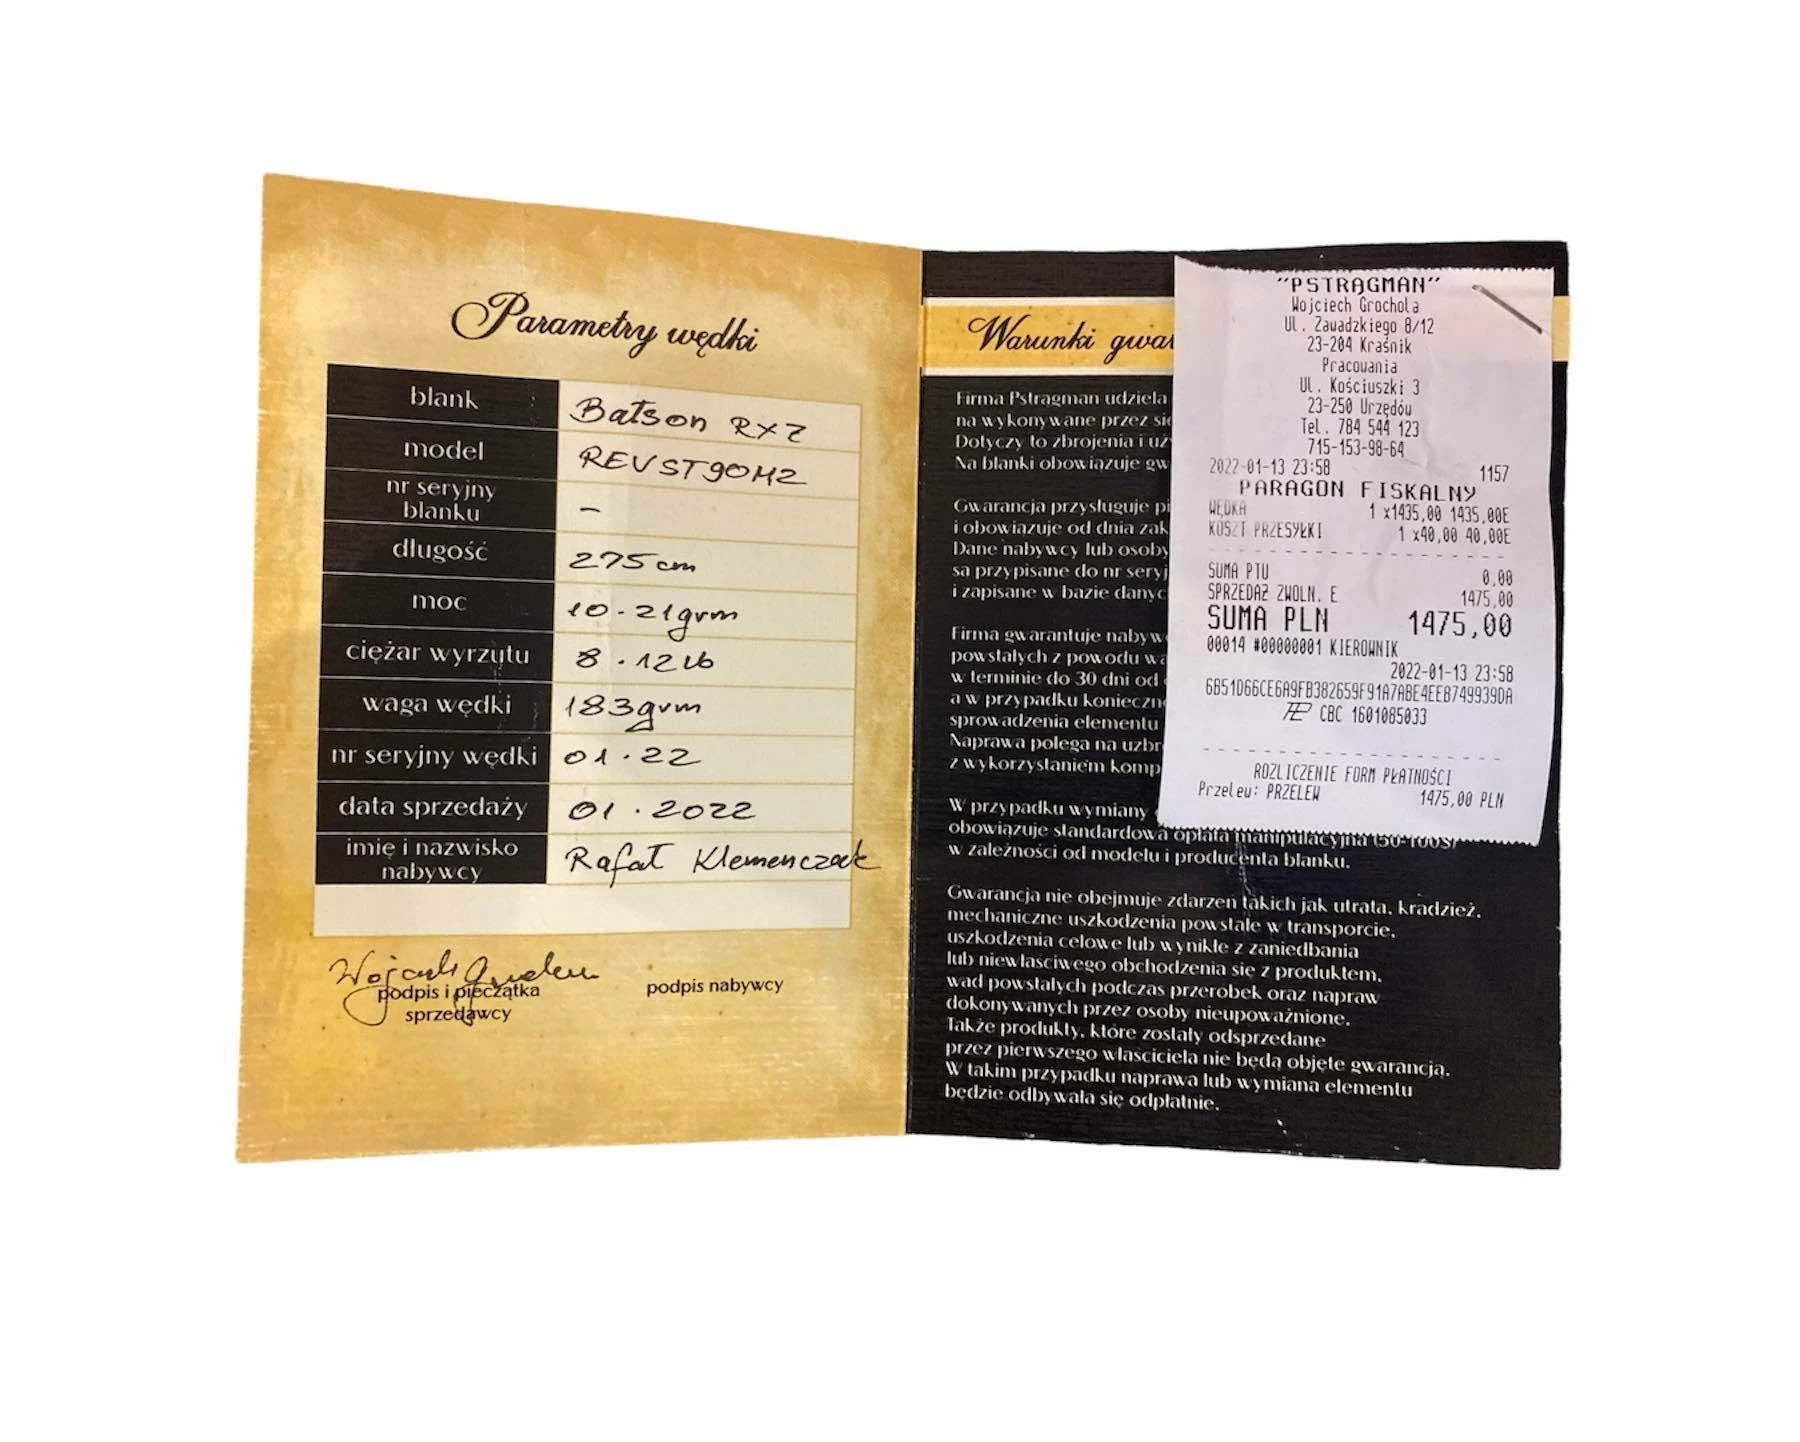 Parametry wędki
blank Batson RX7
model REVST90M2
nr seryjny
blanku –
długość 275 cm
moc 10-21grm
ciężar wyrzutu 8-12 lb
waga wędki 183grm
nr seryjny wędki 01.22
data sprzedaży 01.2022
imię i nazwisko
nabywcy Rafał Klemenczak
podpis i pieczątka
sprzedawcy
podpis nabywcy
Warunki
Firma Pstrągman udziela
na wykonywane przez
Dotyczy to zbrojenia i
Na blanki obowiązuje
Gwarancja przysługuje
i obowiązuje od dnia
Dane nabywcy lub osoby
są przypisane do nr
i zapisane w bazie
Firma gwarantuje
powstałych z powodu
w terminie do 30 dni od
a w przypadku
sprowadzenia elementu
Naprawa polega na
z wykorzystaniem
W przypadku wymiany
obowiązuje standardowa opłata manipulacyjna (50-100$)
w zależności od modelu i producenta blanku.
Gwarancja nie obejmuje zdarzeń takich jak utrata, kradzież,
mechaniczne uszkodzenia powstałe w transporcie,
uszkodzenia celowe lub wynikłe z zaniedbania
lub niewłaściwego obchodzenia się z produktem,
wad powstałych podczas przeróbek oraz napraw
dokonywanych przez osoby nieupoważnione.
Także produkty, które zostały odsprzedane
przez pierwszego właściciela nie będą objęte gwarancją.
W takim przypadku naprawa lub wymiana elementu
będzie odbywała się odpłatnie.
"PSTRĄGMAN"
Wojciech Grochola
Ul. Zawadzkiego 8/12
23-204 Kraśnik
Pracownia
Ul. Kościuszki 3
23-250 Urzędów
Tel. 784 544 123
715-153-98-64
2022-01-13 23:58 1157
PARAGON FISKALNY
WĘDKA 1 x1435,00 1435,00E
KOSZT PRZESYŁKI 1 x40,00 40,00E
SUMA PTU 0,00
SPRZEDAŻ ZWOLN. E 1475,00
SUMA PLN 1475,00
00014 #00000001 KIEROWNIK
2022-01-13 23:58
6B51D66CE6A9FB382659F91A7ABE4EEB749939DA
CBC 1601085033
ROZLICZENIE FORM PŁATNOŚCI
Przelew: PRZELEW 1475,00 PLN